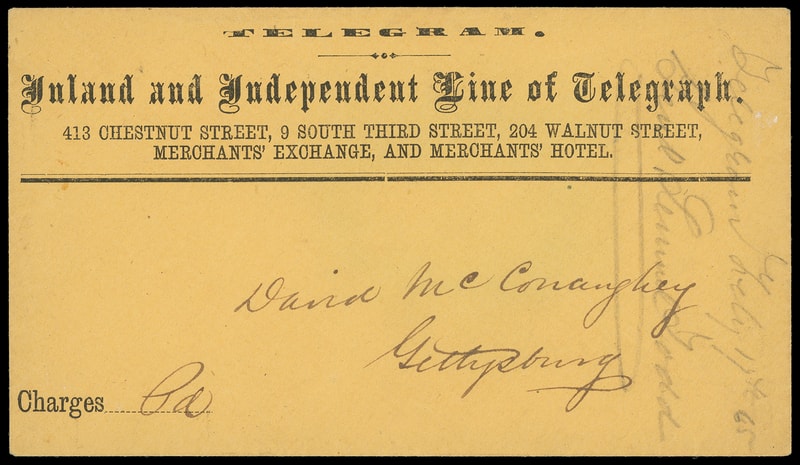 TELEGRAM.
Inland and Independent Line of Telegraph.
413 CHESTNUT STREET, 9 SOUTH THIRD STREET, 204 WALNUT STREET,
MERCHANTS' EXCHANGE, AND MERCHANTS' HOTEL.
David McConaughey
Gettysburg
Charges Pd
Telegram July
Lemuel Todd